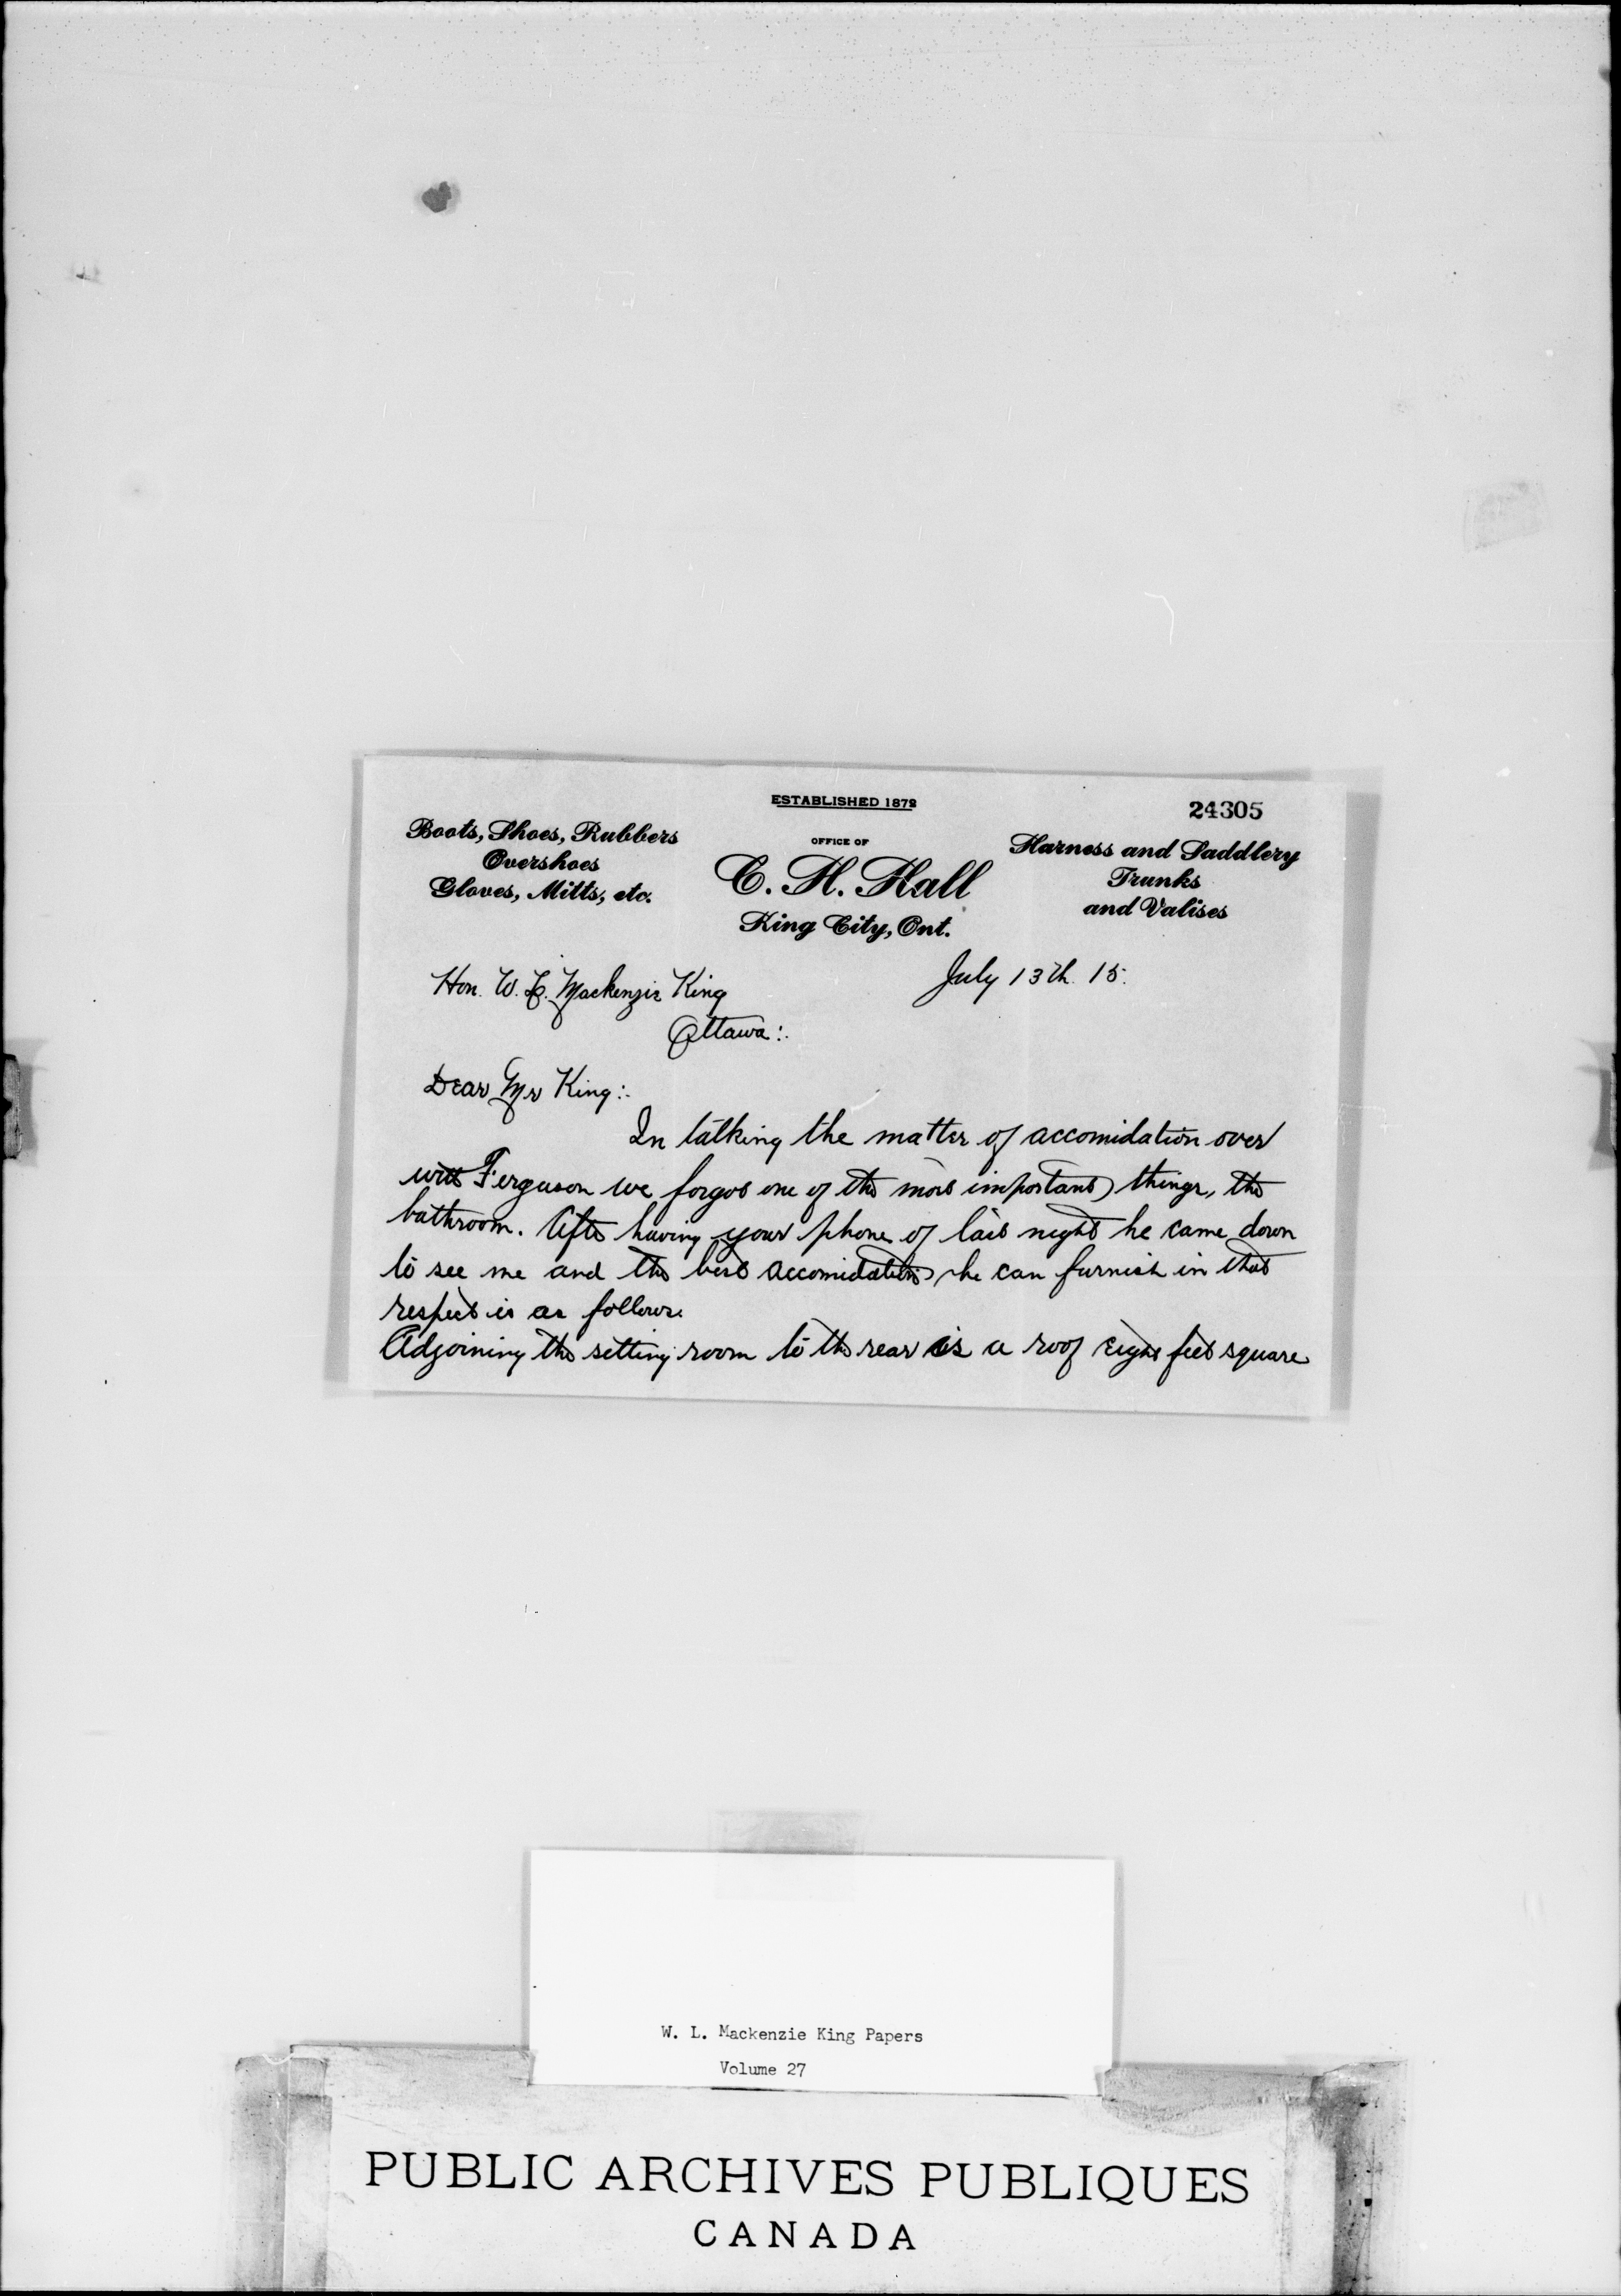 ESTABLISHED 1872
24305
Boots, Shoes, Rubbers
Overshoes
Gloves, Mitts, etc.
OFFICE OF
C. H. Hall
King City, Ont.
Harness and Saddlery
Trunks
and Valises
July 13th. 15.
Hon. W. L. Mackenzie King
Ottawa:.
Dear Mr King:.
In talking the matter of accomidation over
with Ferguson we forgot one of the most important things, the
bathroom. After having your phone of last night he came down
to see me and the best accomidation he can furnish in that
respect is as follows.
Adjoining the setting room to the rear is a roof eight feet square
W. L. Mackenzie King Papers
Volume 27
PUBLIC ARCHIVES PUBLIQUES
CANADA